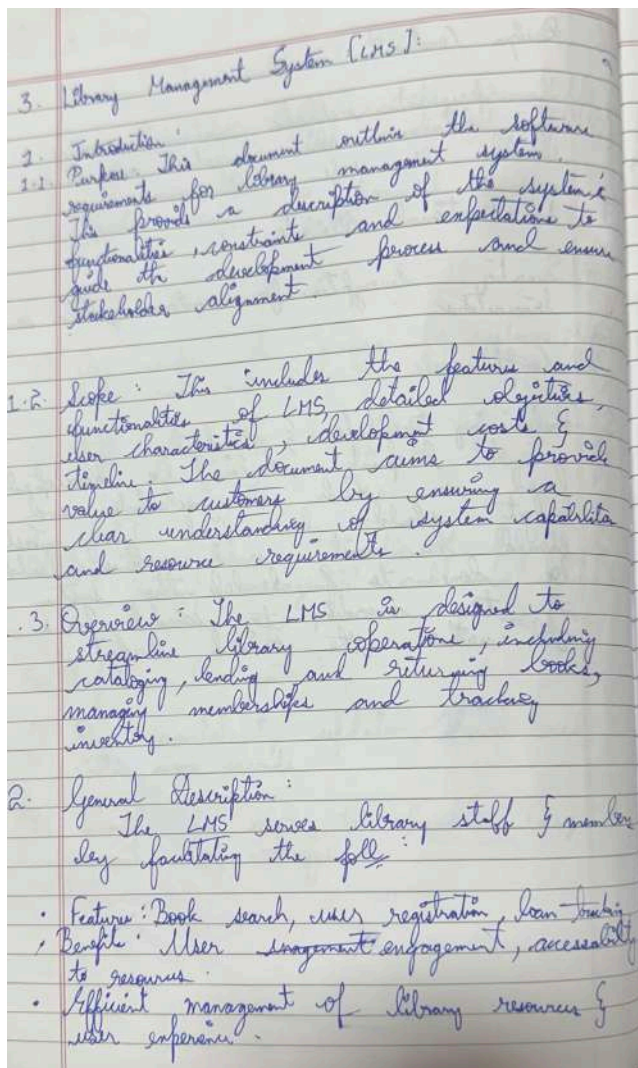 3. Library Management System [LMS]:
1. Introduction:
1.1. Purpose: This document outlines the software
requirements for library management system.
This provids a description of the system's
functionalities, constraints and expectations to
guide the development process and ensure
stakeholder alignment.
1.2. Scope: This includes the features and
functionalities of LMS, detailed objectives,
user characteristics, development costs &
timeline. The document aims to provide
value to customers by ensuring a
clear understanding of system capabilities
and resource requirements.
.3. Overview: The LMS is designed to
streamline library operations, including
cataloging, lending and returning books,
managing memberships and tracking
inventory.
2. General Description:
The LMS serves library staff & member
by facilitating the foll:
• Features: Book search, user registration, loan tracking
• Benefits: User engagement, accessability
to resources.
• Efficient management of library resources &
user experience.